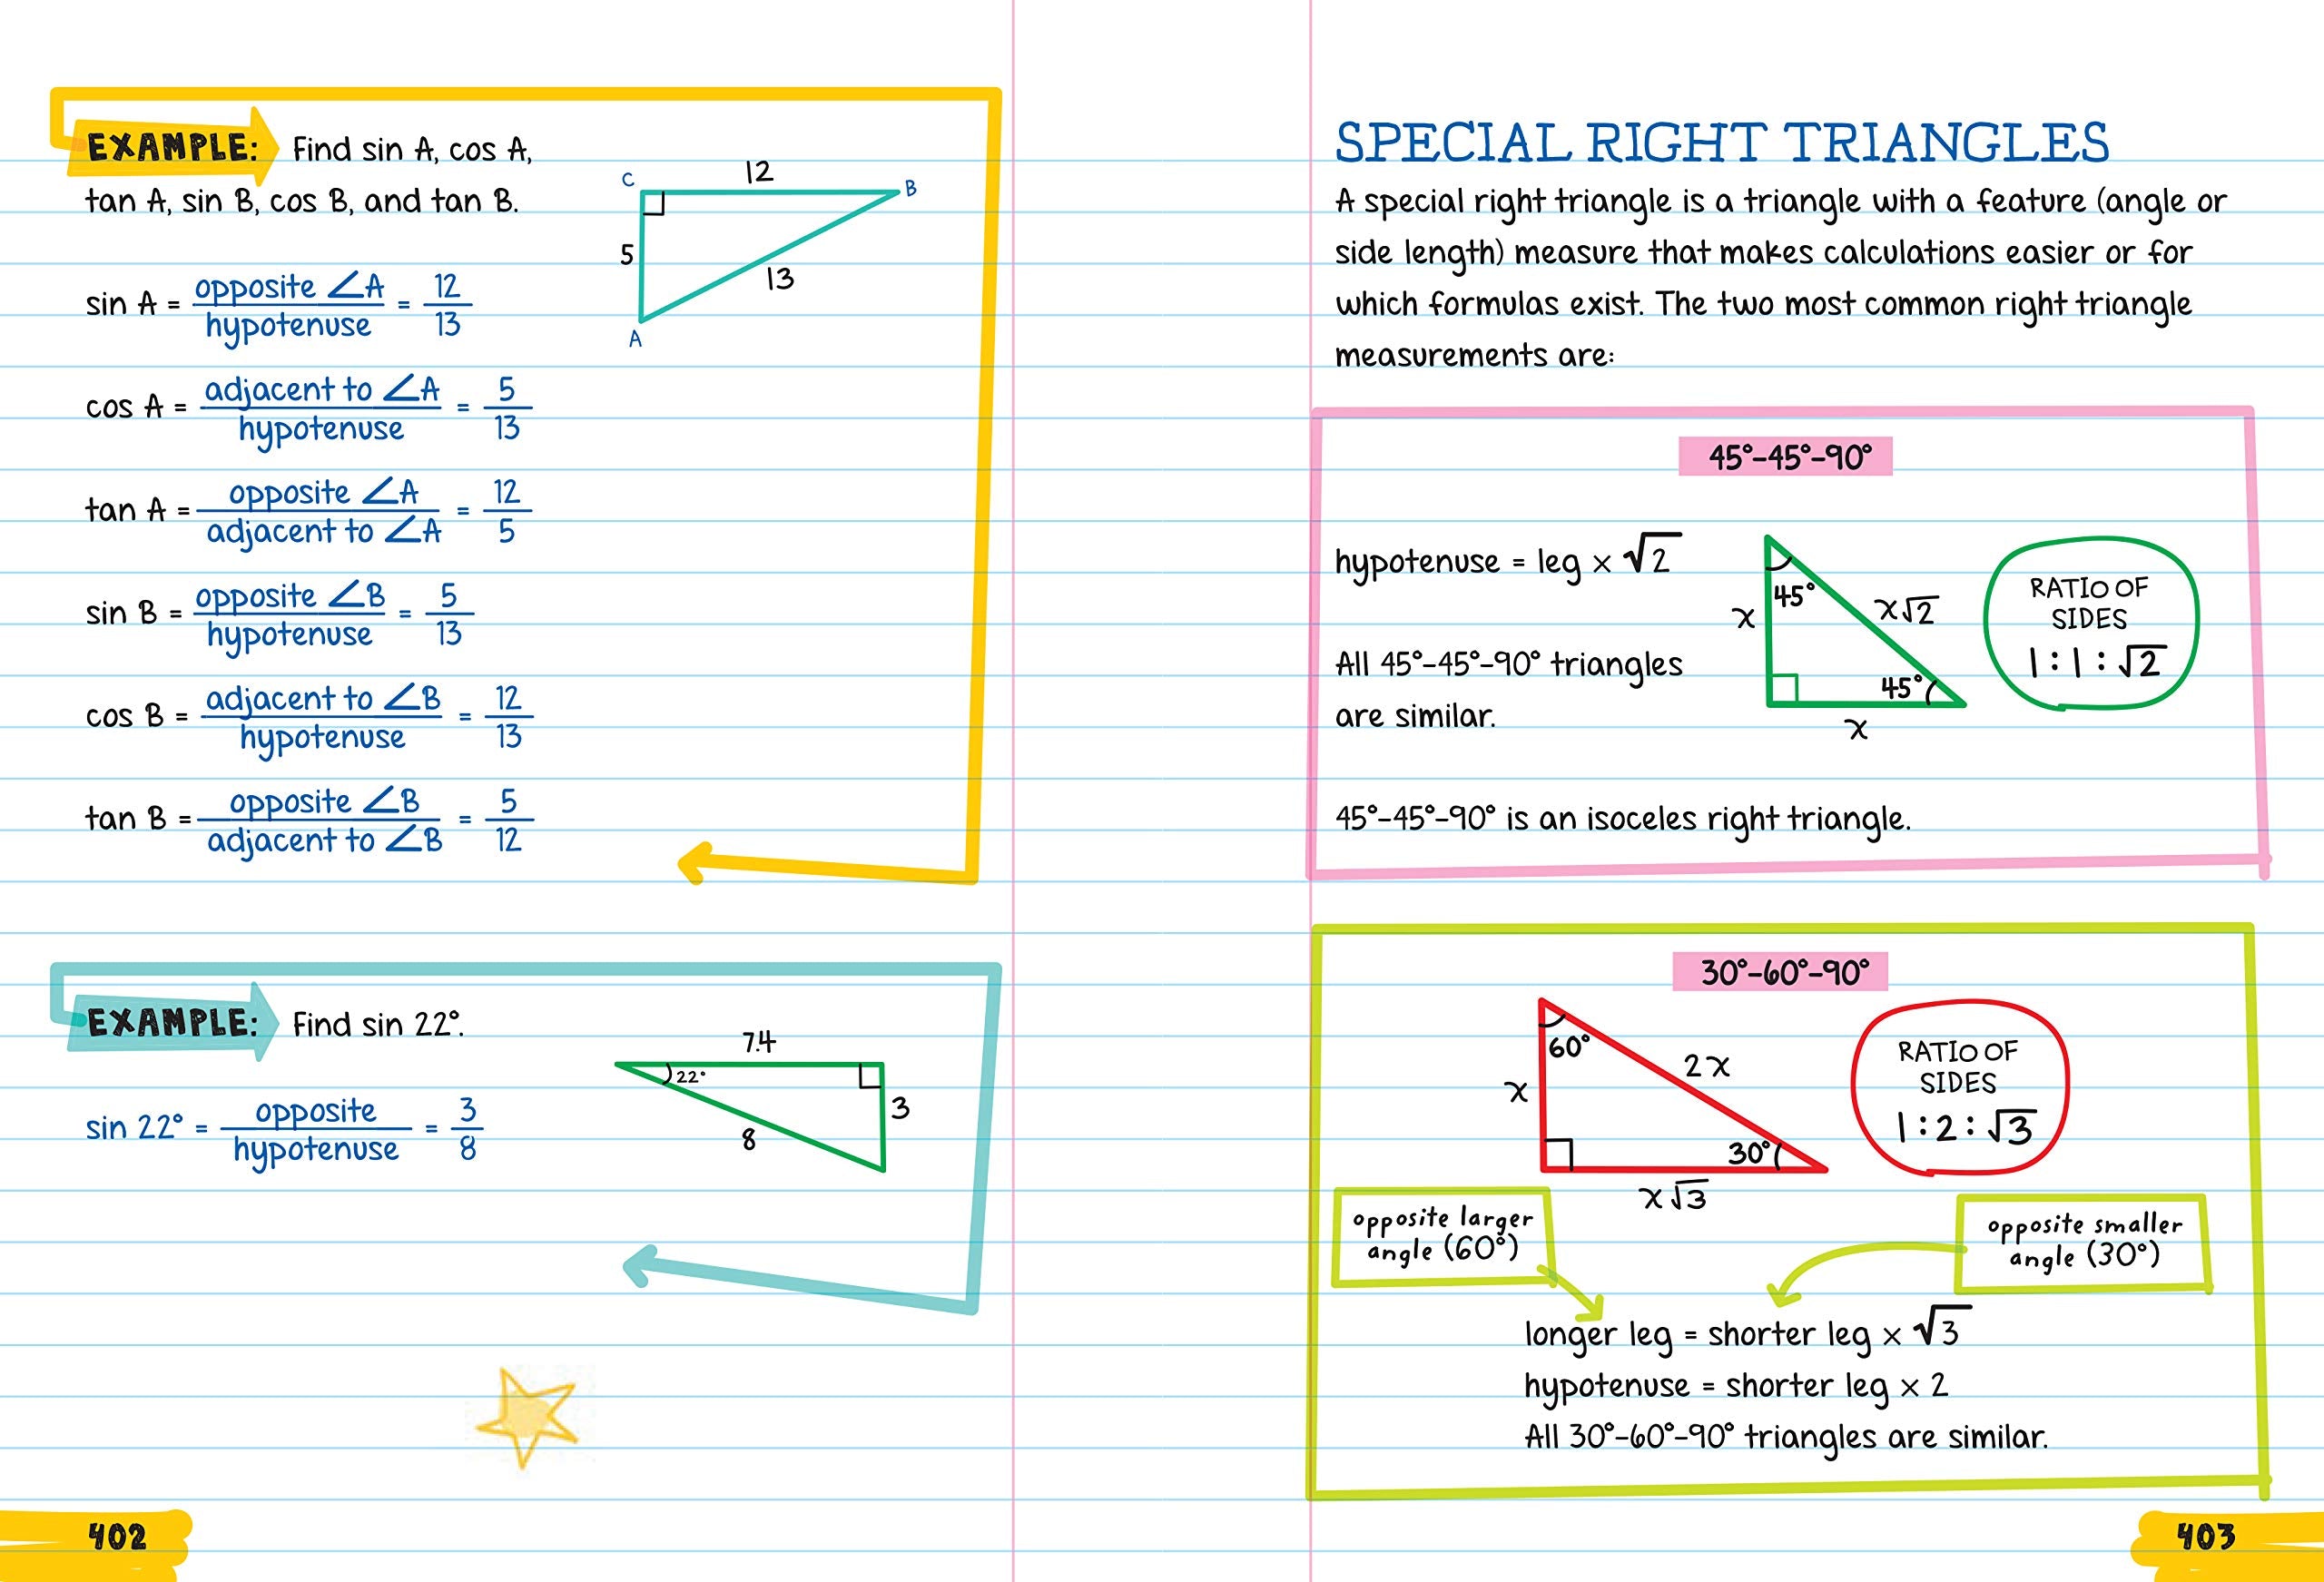 EXAMPLE: Find sin A, cos A,
tan A, sin B, cos B, and tan B.
C 12 B
5
13
A
sin A = opposite ∠A / hypotenuse = 12/13
cos A = adjacent to ∠A / hypotenuse = 5/13
tan A = opposite ∠A / adjacent to ∠A = 12/5
sin B = opposite ∠B / hypotenuse = 5/13
cos B = adjacent to ∠B / hypotenuse = 12/13
tan B = opposite ∠B / adjacent to ∠B = 5/12
EXAMPLE: Find sin 22°.
7.4
22°
3
8
sin 22° = opposite / hypotenuse = 3/8
402
SPECIAL RIGHT TRIANGLES
A special right triangle is a triangle with a feature (angle or
side length) measure that makes calculations easier or for
which formulas exist. The two most common right triangle
measurements are:
45°–45°–90°
hypotenuse = leg × √2
All 45°–45°–90° triangles
are similar.
45°
x
x√2
45°
x
RATIO OF
SIDES
1 : 1 : √2
45°–45°–90° is an isoceles right triangle.
30°–60°–90°
60°
x
2x
30°
x√3
RATIO OF
SIDES
1 : 2 : √3
opposite larger
angle (60°)
opposite smaller
angle (30°)
longer leg = shorter leg × √3
hypotenuse = shorter leg × 2
All 30°–60°–90° triangles are similar.
403